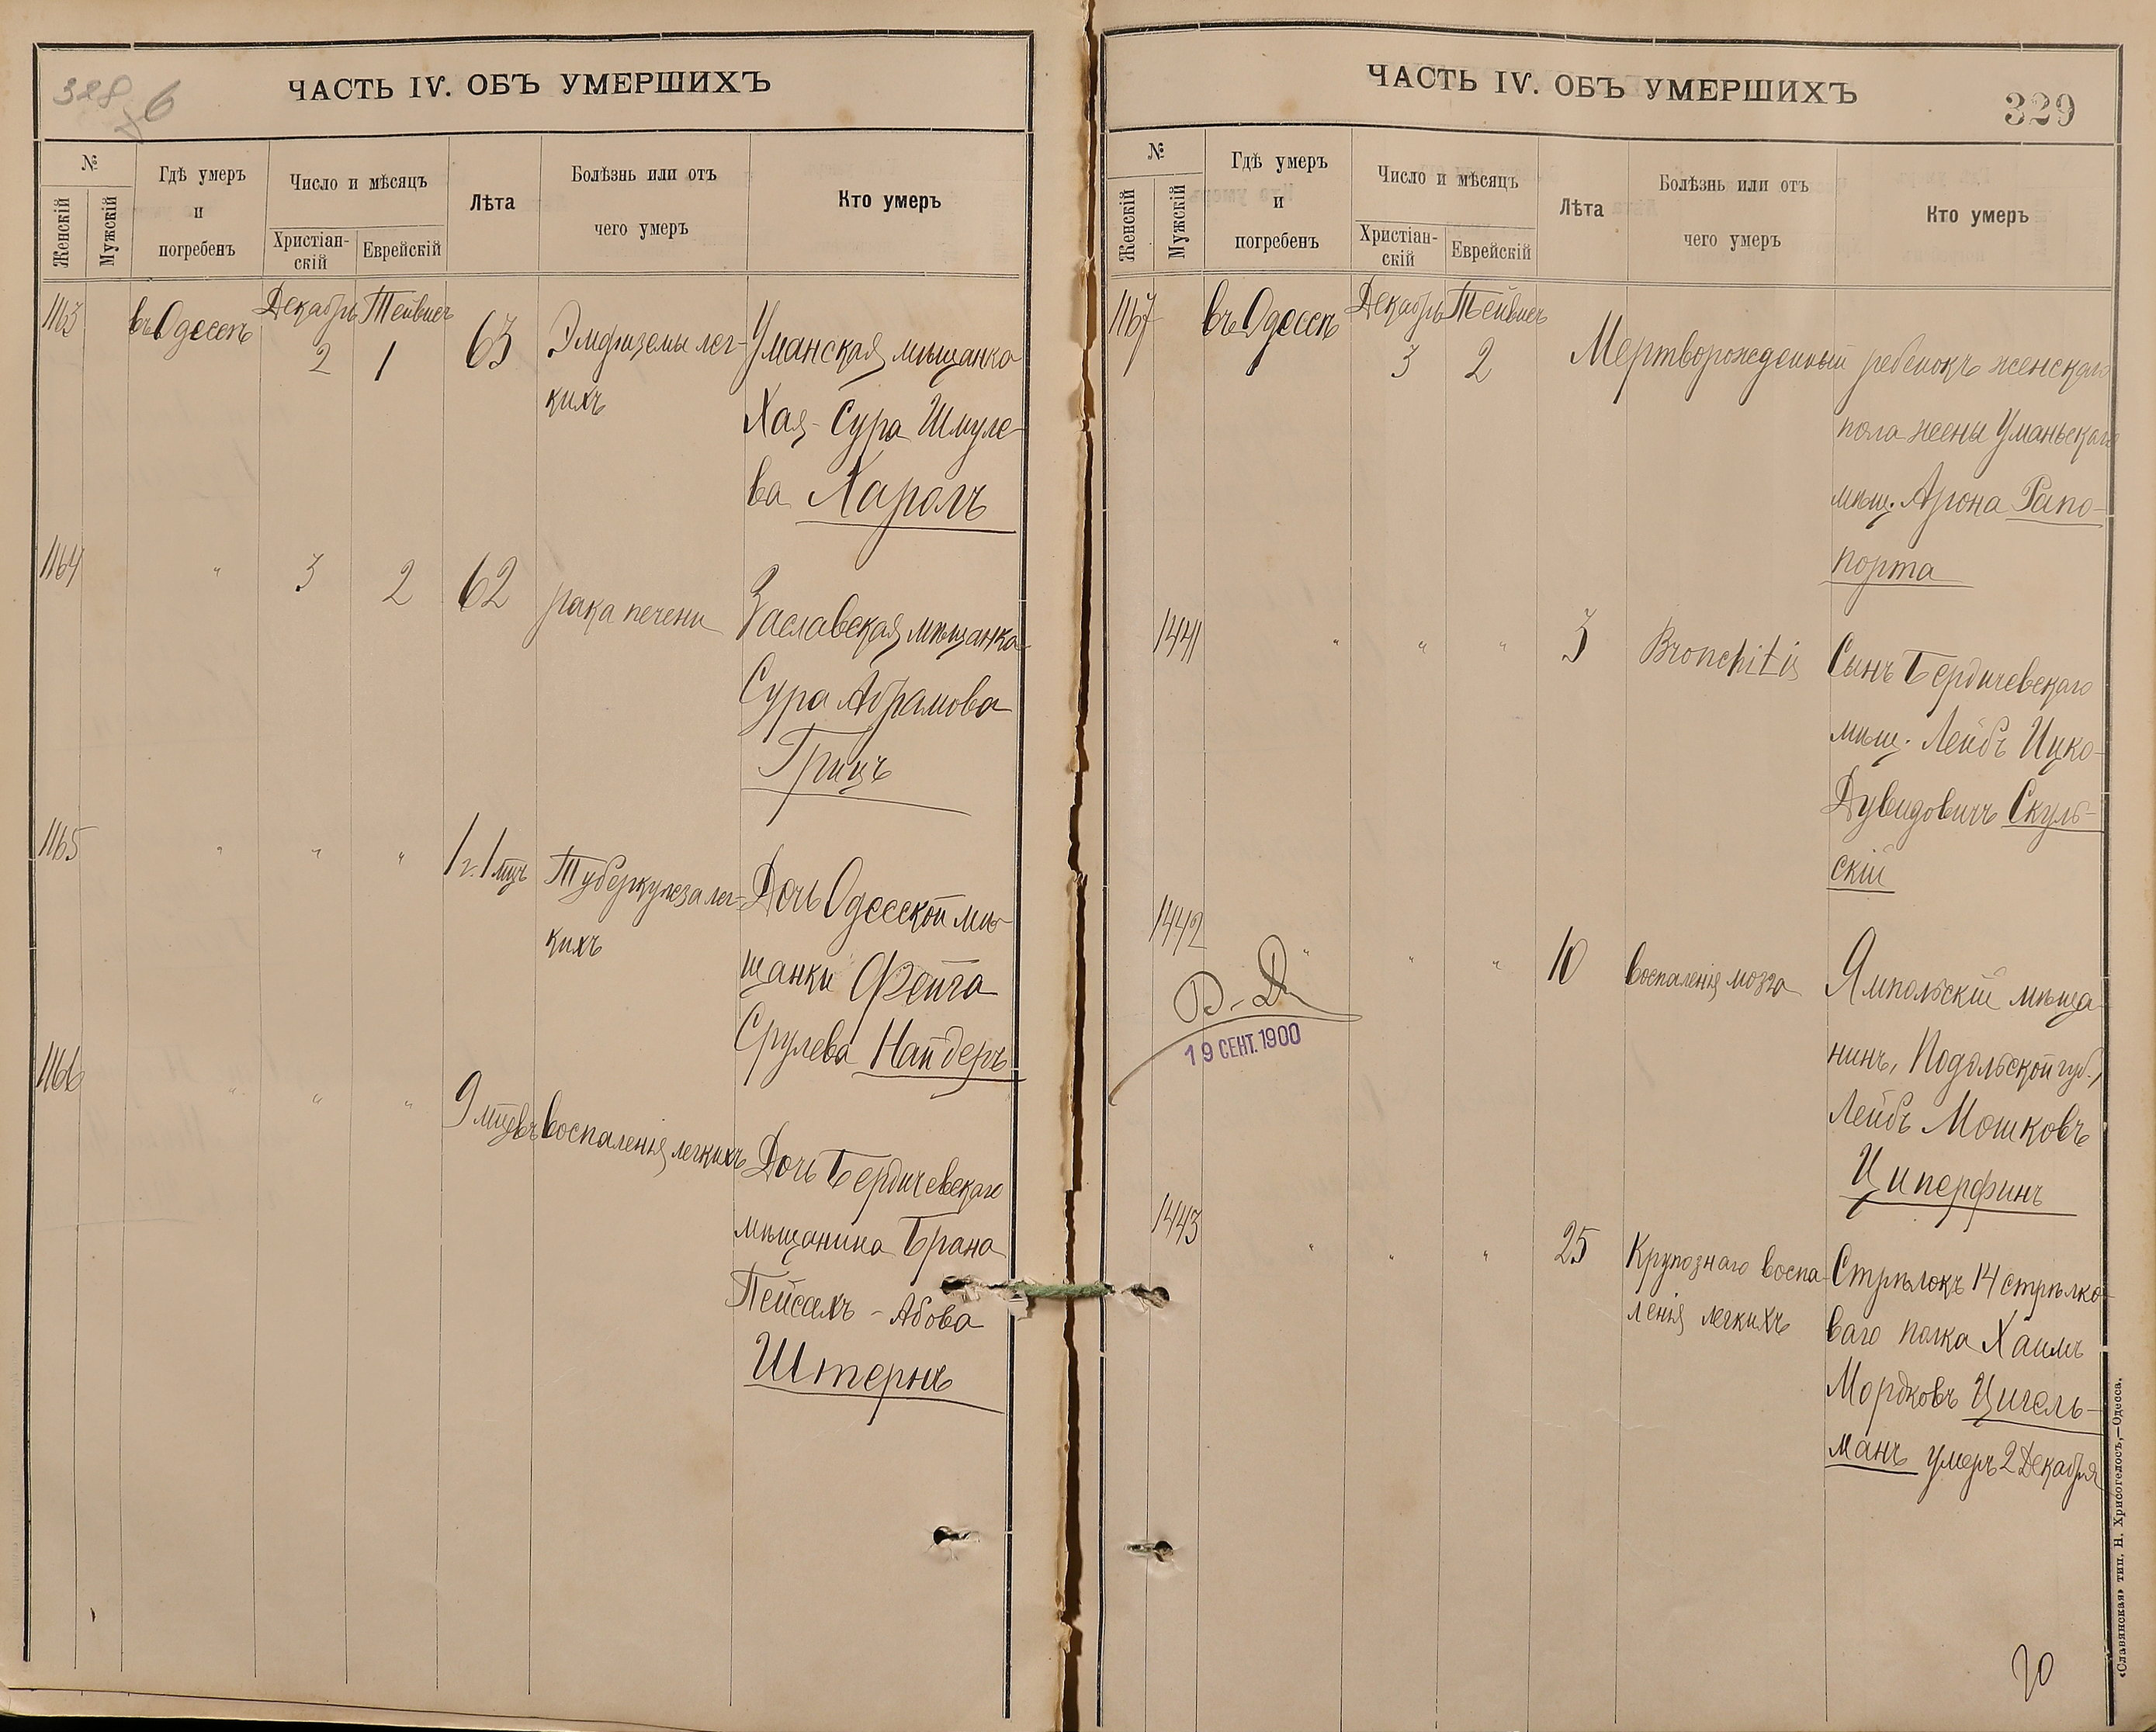 328 об
ЧАСТЬ IV. ОБЪ УМЕРШИХЪ
№
Женскій
Мужскій
Гдѣ умеръ
и
погребенъ
Число и мѣсяцъ
Христіан-
скій
Еврейскій
Лѣта
Болѣзнь или отъ
чего умеръ
Кто умеръ
1163 въ Одессѣ Декабрь Тейвисъ
2 1 63 Эмфиземы лег- Уманская мѣщанка
кихъ Хая-Сура Шмуле-
ва Хароль
1164 " 3 2 62 рака печени Заславская мѣщанка
Сура Абрамова
Грицъ
1165 " " " 1 г. 1 мцъ Туберкулеза лег- Дочь Одесской мѣ-
кихъ щанки Фейга
Срулева Найдеръ
1166 " " " 9 мцевъ воспаленія легкихъ Дочь Бердичевскаго
мѣщанина Брана
Пейсахъ-Абова
Штернъ
ЧАСТЬ IV. ОБЪ УМЕРШИХЪ
329
№
Женскій
Мужскій
Гдѣ умеръ
и
погребенъ
Число и мѣсяцъ
Христіан-
скій
Еврейскій
Лѣта
Болѣзнь или отъ
чего умеръ
Кто умеръ
1167 въ Одессѣ Декабрь Тейвисъ
3 2 Мертворожденный ребенокъ женскаго
пола жены Уманьскаго
мѣщ. Арона Рапо-
порта
1441 " " " 3 Bronchitis Сынъ Бердичевскаго
мѣщ. Лейбъ Ицко-
Дувидовичъ Скуль-
скій
1442 " " " 10 воспаленія мозга Ямпольскій мѣща
нинъ, Подольской губ.,
Лейбъ Мошковъ
Циперфинъ
В. Д.
19 СЕНТ. 1900
1443 " " " 25 Крупознаго воспа- Стрѣлокъ 14 стрѣлко-
ленія легкихъ ваго полка Хаимъ
Мордковъ Цигель-
манъ умеръ 2 Декабря
«Славянская» тип. Н. Хрисогелосъ,—Одесса.
20